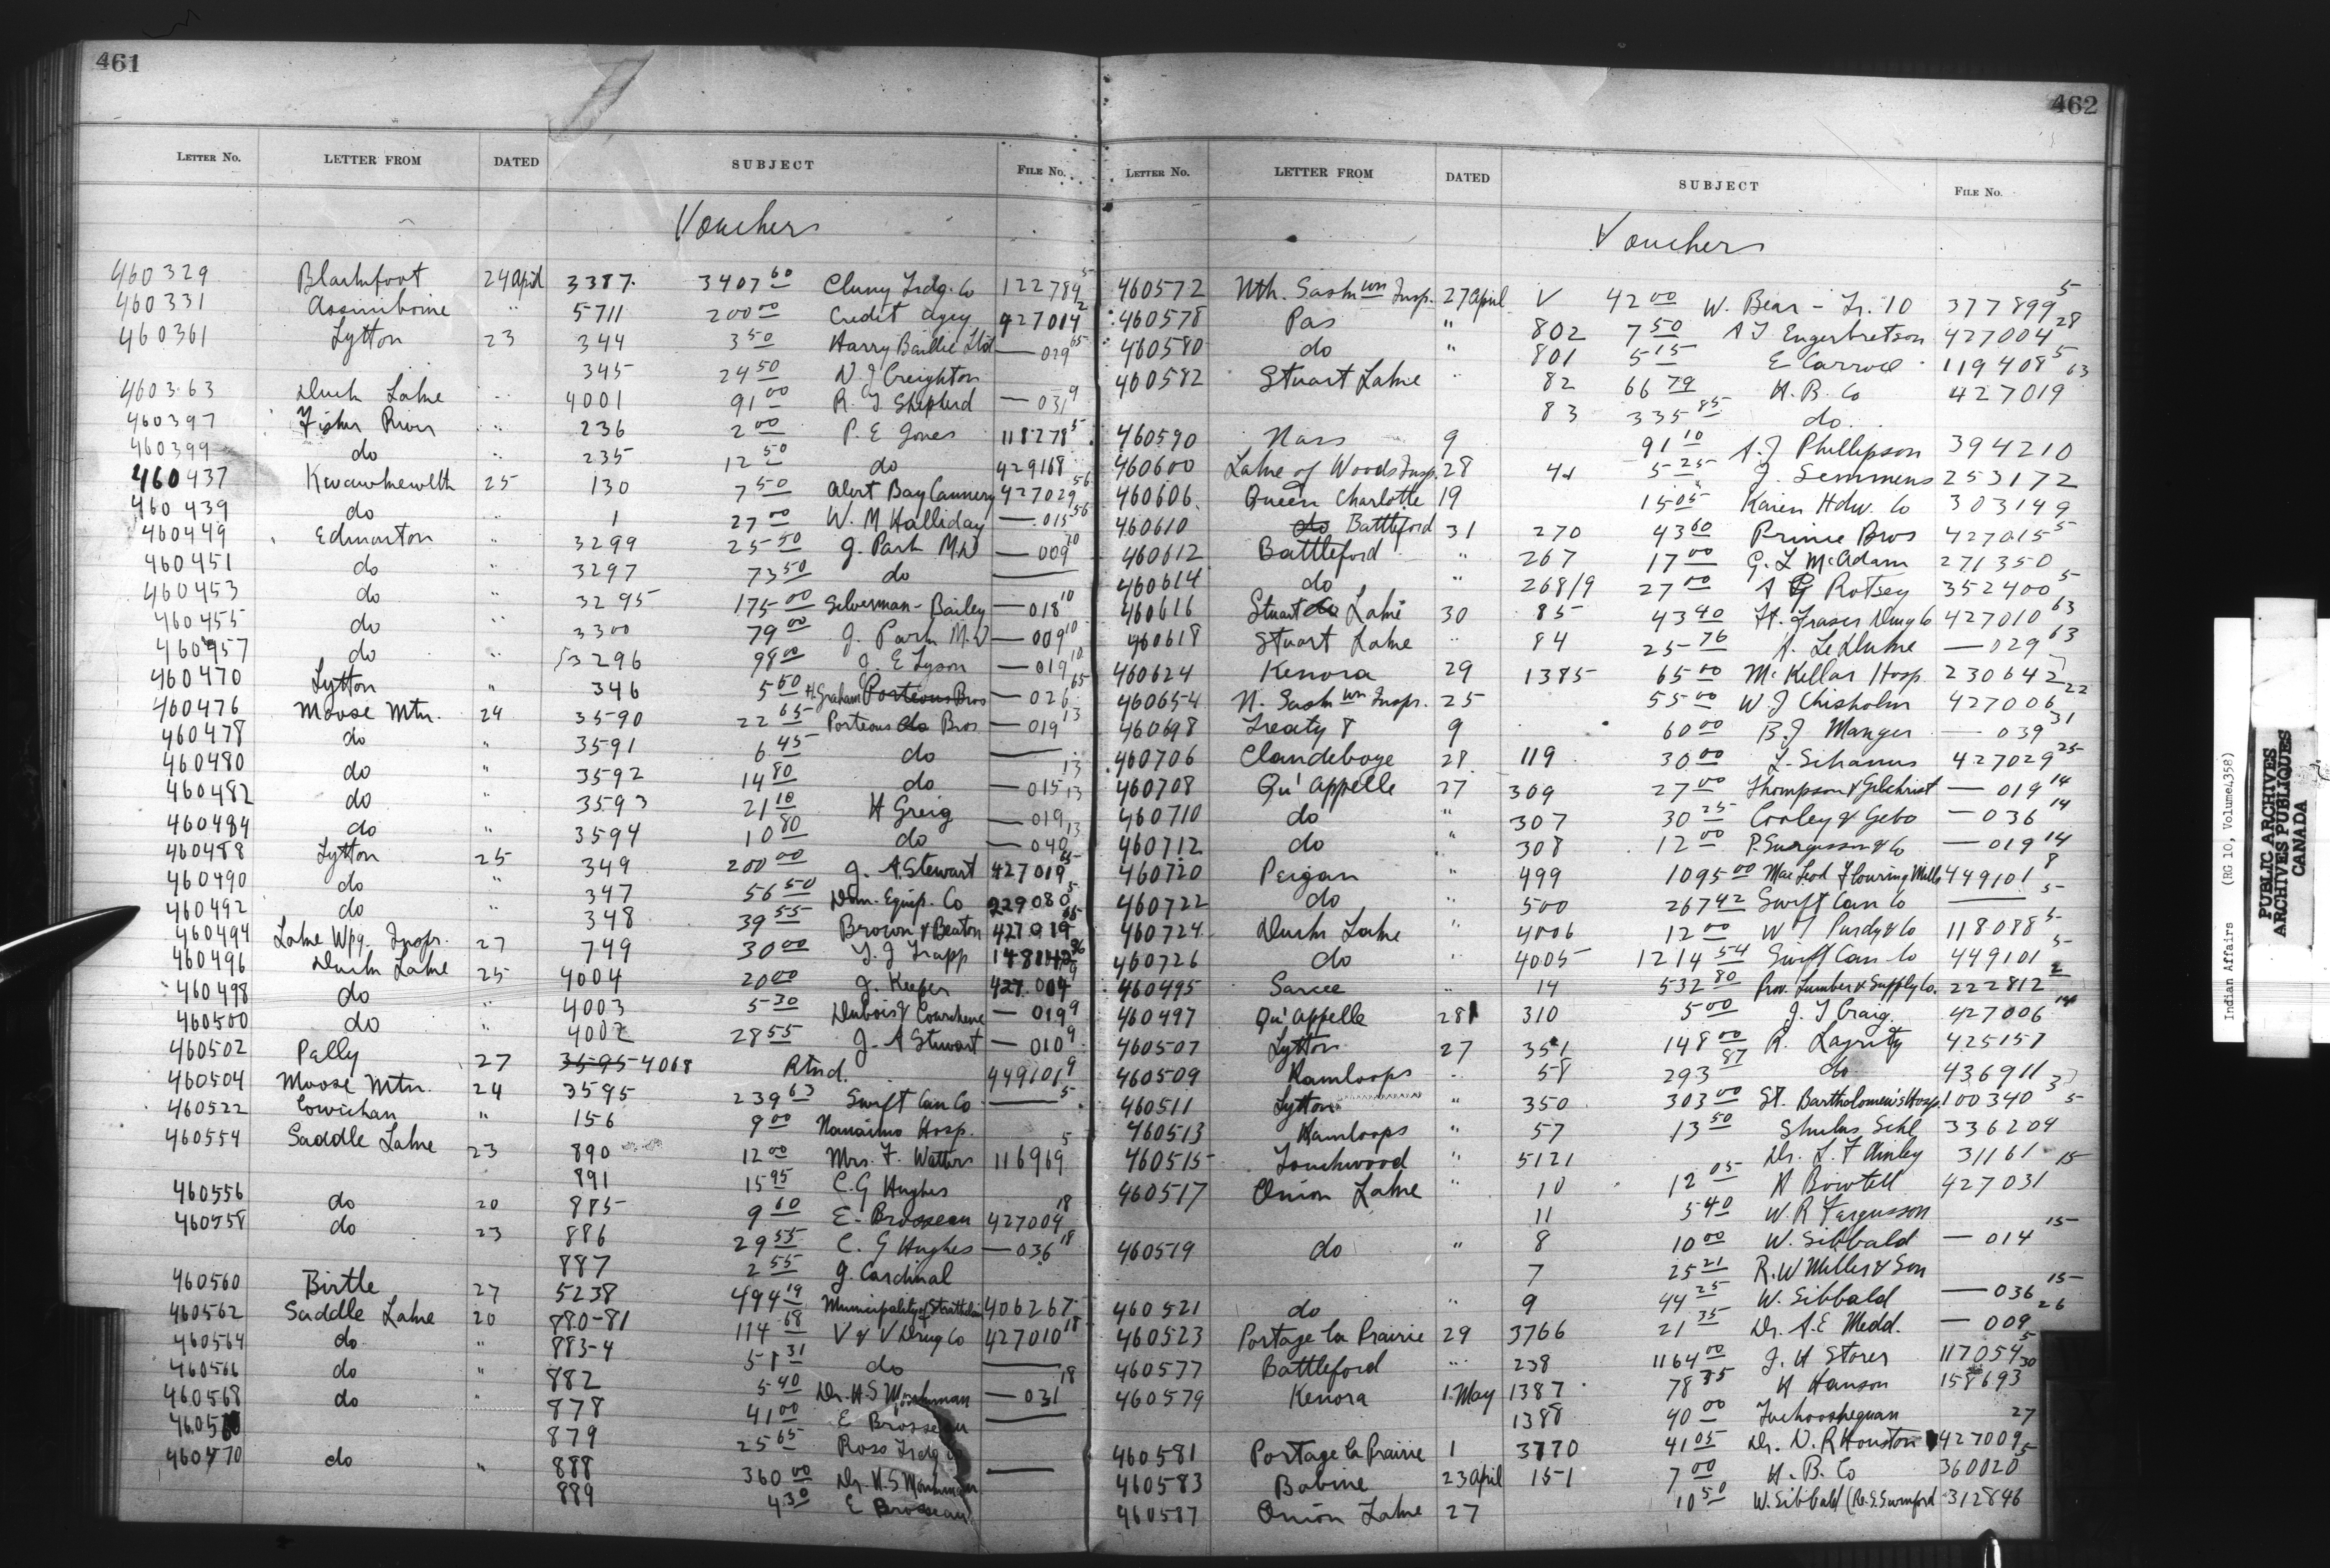 461
LETTER NO. LETTER FROM DATED SUBJECT FILE NO.
Vouchers
460329 Blackfoot 24 April 3387 3407 60 Cluny Trdg. Co 122784 5
460331 Assiniboine " 5711 200 00 Credit agcy 427014 2
460361 Lytton 23 344 3 50 Harry Baillie Ltd — 029 65
345 24 50 N J Creighton
460363 Duck Lake " 4001 91 00 R J Shepherd — 031 9
460397 Fisher River " 236 2 00 P. E Jones 118278 5
460399 do " 235 12 50 do 429168
460437 Kwawkewlth 25 130 7 50 Alert Bay Cannery 427029 56
460439 do " 1 27 00 W. M Halliday — 015 56
460449 Edmonton " 3299 25 50 J. Park M.D — 009 10
460451 do " 3297 73 50 do ——
460453 do " 3295 175 00 Silverman - Bailey — 018 10
460455 do " 3300 79 00 J. Park M.D — 009 10
460457 do " 3296 98 00 J. E Tyson — 019 10
460470 Lytton " 346 5 50 H. Graham Porteous Bros — 026 65
460476 Moose Mtn. 24 3590 22 65 Porteous do Bros — 019 13
460478 do " 3591 6 45 do ——
460480 do " 3592 14 80 do — 015 13
460482 do 3593 21 10 H Greig — 019 13
460484 do " 3594 10 80 do — 040 13
460488 Lytton 25 349 200 00 J. A. Stewart 427019 65
460490 do " 347 56 50 Dom. Equip. Co 229080 5
460492 do " 348 39 55 Brown & Beaton 427019 65
460494 Lake Wpg. Insp. 27 749 30 00 T. J Trapp
460496 Duck Lake 25 4004 20 00 J. Keefer 427004 9
460498 do " 4003 5 30 Dubois & Courchene — 019 9
460500 do " 4002 28 55 J. A Stewart — 010 9
460502 Pelly 27 3595 4068 Rtnd. 449101 9
460504 Moose Mtn. 24 3595 239 63 Swift Can Co —— 5
460522 Cowichan " 156 9 00 Nanaimo Hosp.
460554 Saddle Lake 23 890 12 00 Mrs. F. Watters 116969 5
891 15 95 C. G Hughes
460556 do 20 885 9 60 E. Brosseau 427004 18
460558 do 23 886 29 55 C. G Hughes — 036 18
887 2 55 J. Cardinal
460560 Birtle 27 5238 494 19 Municipality of Strathclair 406267
460562 Saddle Lake 20 880-81 114 68 V & V Drug Co 427010 18
460564 do " 883-4 51 31 do ——
460566 do " 882 5 40 Dr. H. S — 031 18
460568 do " 878 41 00 E Brosseau ——
879 25 65 Ross Trdg Co
do " 888 360 00 Dr. H. S ——
889 4 30 E Brosseau
462
LETTER NO. LETTER FROM DATED SUBJECT FILE NO.
Vouchers
460572 Nth. Sask wn Insp. 27 April V 42 00 W. Bear - Tr. 10 377899 5
460578 Pas " 802 7 50 A J Engerbretson 427004 28
460580 do " 801 5 15 E Carroll 119408 5
460582 Stuart Lake " 82 66 79 H. B. Co 427019 63
83 335 85 do
460590 Nass 9 91 10 A. J Phillipson 394210
460600 Lake of Woods Insp. 28 5 25 J. Semmens 253172
460606 Queen Charlotte 19 15 05 Kaien Hdw. Co 303149
460610 do Battleford 31 270 43 60 Prince Bros 427015 5
460612 Battleford " 267 17 00 G. L McAdam 271350
460614 do " 268/9 27 00 A G Rotsey 352400 5
460616 Stuart do Lake 30 85 43 40 Ft. Fraser Drug Co 427010 63
460618 Stuart Lake " 84 25 76 H. — 029 63
460624 Kenora 29 1385 65 00 McKellar Hosp. 230642
460654 N. Sask wn Insp. 25 55 00 W J Chisholm 427006 22
460698 Treaty 8 9 60 00 B. J Manger — 039 31
460706 Clandeboye 28 119 30 00 F. 427029 25
460708 Qu'Appelle 27 309 27 00 Thompson & Gilchrist — 019 14
460710 do " 307 30 25 Cooley & Gebo — 036 14
460712 do " 308 12 00 P. & Co — 019 14
460720 Peigan " 499 1095 00 MacLeod Flouring Mills 449101 8
460722 do " 500 267 42 Swift Can Co —— 5
460724 Duck Lake " 4006 12 00 W J Purdy & Co 118088 5
460726 do " 4005 1214 54 Swift Can Co 449101 5
460495 Sarcee " 14 532 80 Prov. Lumber & Supply Co. 222812 2
460497 Qu'Appelle 28 310 5 00 J. T Craig 427006 14
460507 Lytton 27 351 148 00 R. Layrity 425157
460509 Kamloops " 58 293 87 do 436911
460511 Lytton " 350 303 00 St. Bartholomew's Hosp. 100340 3
460513 Kamloops " 57 13 50 Shulus Schl 336204 5
460515 Touchwood " 5121 Dr. L. F 31161
460517 Onion Lake " 10 12 05 H Bowtell 427031 15
11 5 40 W. R Fergusson
460519 do " 8 10 00 W. Sibbald — 014 15
7 25 21 R. W Miller & Son
460521 do " 9 44 25 W. Sibbald — 036 15
460523 Portage la Prairie 29 3766 21 35 Dr. A. E Medd. — 009 26
460577 Battleford " 238 1164 00 J. H Storer 117054 5
460579 Kenora 1 May 1387 78 85 H Hanson 158693 30
1388 40 00
460581 Portage la Prairie 1 3770 41 05 Dr. N. R Houston 427009 27
460583 Babine 23 April 151 7 00 H. B. Co 360020 5
460587 Onion Lake 27 10 50 W. Sibbald (Re. S. Swinford 312846
Indian Affairs (RG 10, Volume 4358)
PUBLIC ARCHIVES
ARCHIVES PUBLIQUES
CANADA